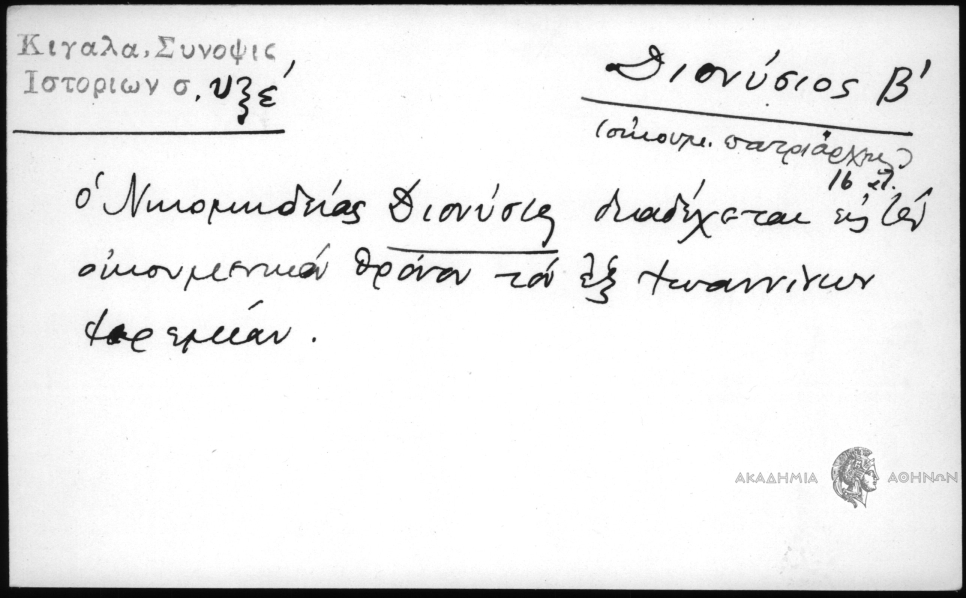 Κιγαλα, Συνοψις
Ιστοριων σ. υξε΄
Διονύσιος Β΄
(οἰκουμ. πατριάρχης)
16 αἰ.
ὁ Νικομηδείας Διονύσιος διαδέχεται εἰς τὸν
οἰκουμενικὸν θρόνον τὸν ἐξ Ἰωαννίνων
Ἱερεμίαν.
ΑΚΑΔΗΜΙΑ ΑΘΗΝΩΝ